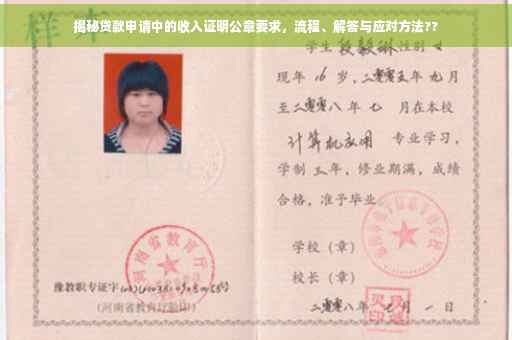 揭秘贷款申请中的收入证明公章要求，流程、解答与应对方法??
样本
学生段毅琳性别女
现年16岁，二零零五年九月
至二零零八年七月在本校
计算机应用专业学习，
学制三年，修业期满，成绩
合格，准予毕业
学校（章）
校长（章）
河南省教育厅
豫教职专证字
（河南省教育厅验印）
二零零八年七月一日